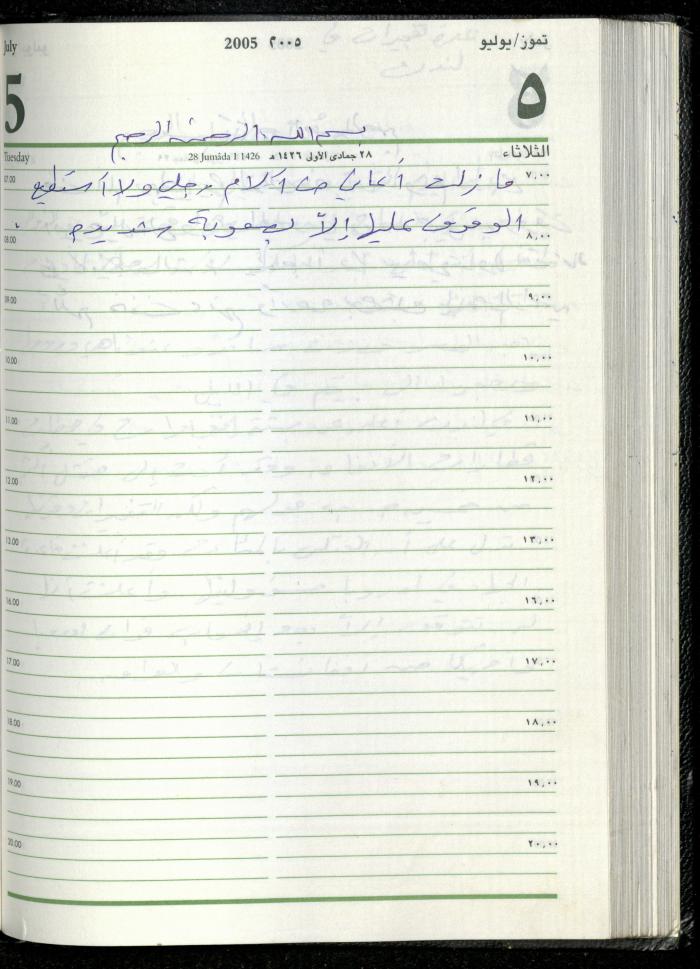 July 2005 ٢٠٠٥ تموز/يوليو
5 ٥
بسم الله الرحمن الرحيم
Tuesday 28 Jumâda I 1426 ٢٨ جمادى الأولى ١٤٢٦ هـ الثلاثاء
07.00 ٧,٠٠
ما زلت أعاني من آلام رجلي ولا أستطيع
الوقوف عليها إلاّ بصعوبة شديدة.
08.00 ٨,٠٠
09.00 ٩,٠٠
10.00 ١٠,٠٠
11.00 ١١,٠٠
12.00 ١٢,٠٠
13.00 ١٣,٠٠
16.00 ١٦,٠٠
17.00 ١٧,٠٠
18.00 ١٨,٠٠
19.00 ١٩,٠٠
20.00 ٢٠,٠٠